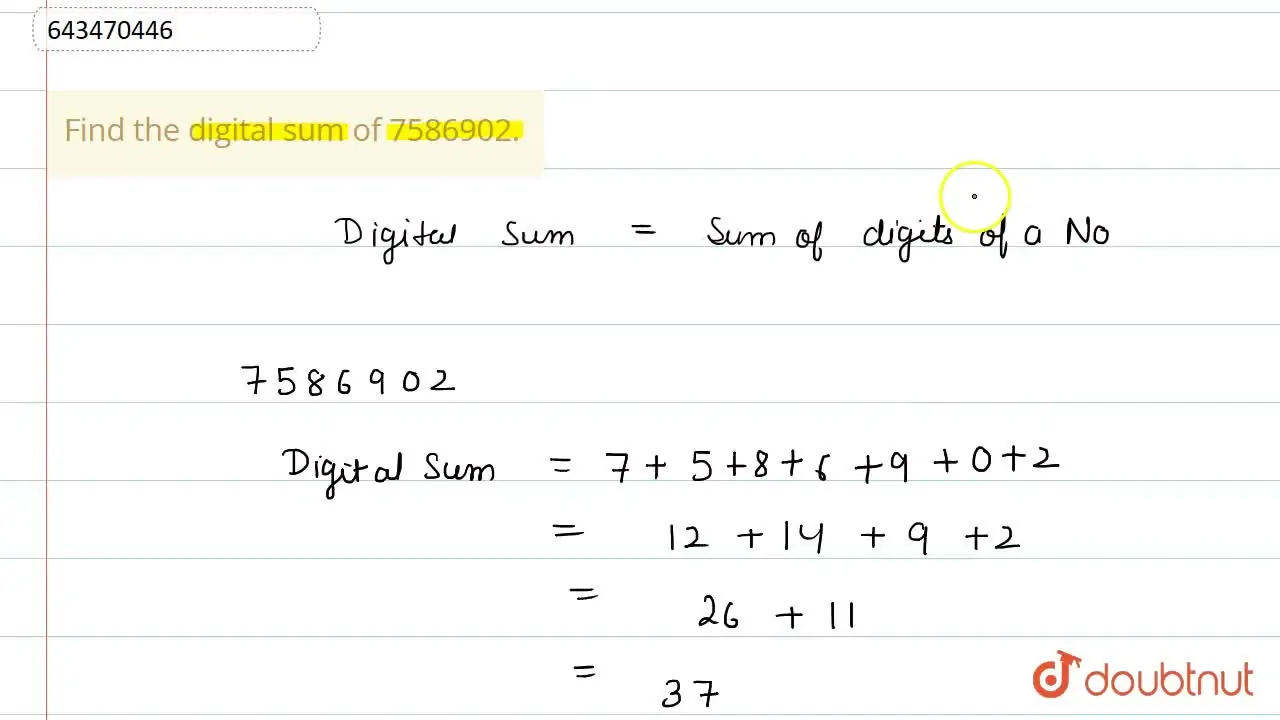 643470446
Find the digital sum of 7586902.
Digital Sum = Sum of digits of a No
7586902
Digital Sum = 7 + 5 + 8 + 6 + 9 + 0 + 2
= 12 + 14 + 9 + 2
= 26 + 11
= 37
doubtnut